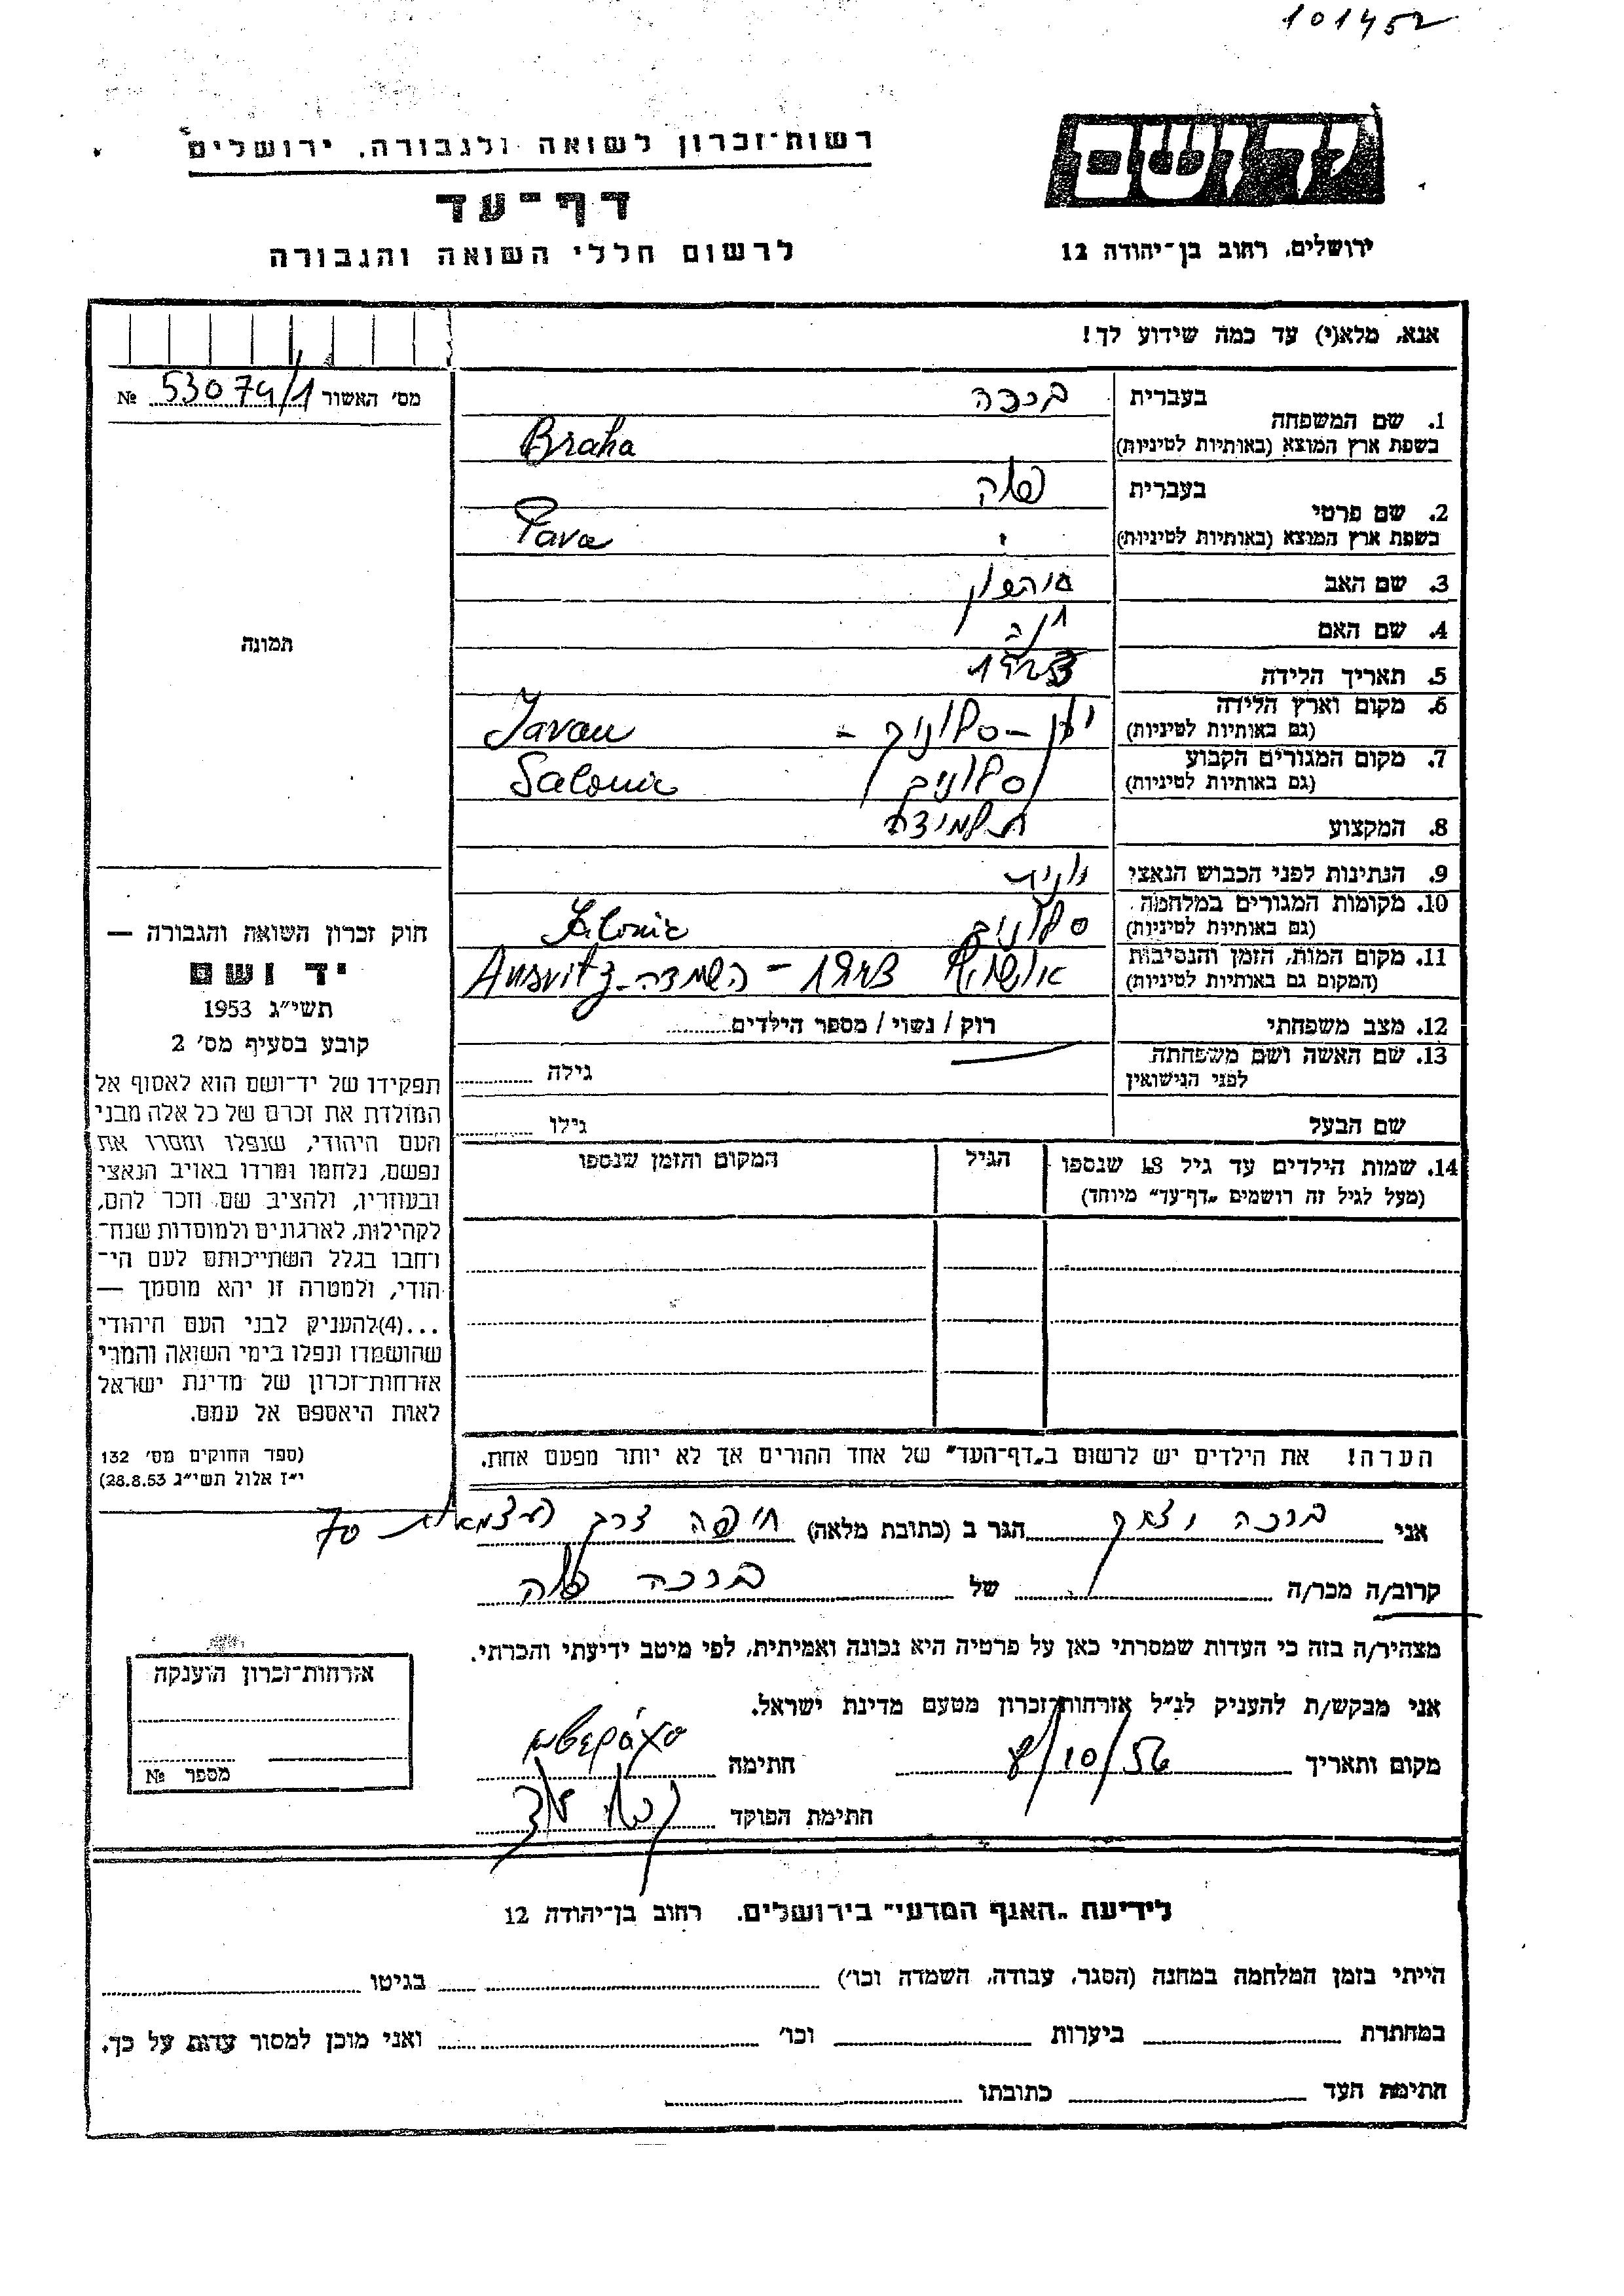 101452
רשות־זכרון לשואה ולגבורה, ירושלים
דף־עד
לרשום חללי השואה והגבורה
ידושם
ירושלים, רחוב בן־יהודה 12
אנא, מלא(י) עד כמה שידוע לך!
מס' האשור 53074/1 №
1. שם המשפחה
בעברית ברכה
בשפת ארץ המוצא (באותיות לטיניות) Braha
2. שם פרטי
בעברית
בשפת ארץ המוצא (באותיות לטיניות)
3. שם האב
4. שם האם
5. תאריך הלידה
6. מקום וארץ הלידה (גם באותיות לטיניות) יון – סלוניק – Javan
7. מקום המגורים הקבוע (גם באותיות לטיניות) סלוניק Salonic
8. המקצוע תלמידה
9. הנתינות לפני הכבוש הנאצי
10. מקומות המגורים במלחמה (גם באותיות לטיניות) סלוניק Salonic
11. מקום המות, הזמן והנסיבות (המקום גם באותיות לטיניות) אושויץ 1943 – השמדה - Ausvitz
12. מצב משפחתי רוק / נשוי / מספר הילדים
13. שם האשה ושם משפחתה לפני הנישואין גילה
שם הבעל גילו
14. שמות הילדים עד גיל 18 שנספו
(מעל לגיל זה רושמים „דף־עד" מיוחד)
הגיל
המקום והזמן שנספו
הערה! את הילדים יש לרשום ב„דף־העד" של אחד ההורים אך לא יותר מפעם אחת.
תמונה
חוק זכרון השואה והגבורה —
יד ושם
תשי"ג 1953
קובע בסעיף מס' 2
תפקידו של יד־ושם הוא לאסוף אל
המולדת את זכרם של כל אלה מבני
העם היהודי, שנפלו ומסרו את
נפשם, נלחמו ומרדו באויב הנאצי
ובעוזריו, ולהציב שם וזכר להם,
לקהילות, לארגונים ולמוסדות שנח־
רחבו בגלל השתייכותם לעם הי־
הודי, ולמטרה זו יהא מוסמך —
...(4)להעניק לבני העם היהודי
שהושמדו ונפלו בימי השואה והמרי
אזרחות־זכרון של מדינת ישראל
לאות היאספם אל עמם.
(ספר החוקים מס' 132
י"ז אלול תשי"ג 28.8.53)
אני ברכה הגר ב (כתובת מלאה) חיפה דרך העצמאות 70
קרוב/ה מכר/ה של ברכה
מצהיר/ה בזה כי העדות שמסרתי כאן על פרטיה היא נכונה ואמיתית, לפי מיטב ידיעתי והכרתי.
אני מבקש/ת להעניק לנ"ל אזרחות־זכרון מטעם מדינת ישראל.
מקום ותאריך 8/10/56 חתימה
חתימת הפוקד
אזרחות־זכרון הוענקה
מספר №
לידיעת „האגף המדעי" בירושלים, רחוב בן־יהודה 12
הייתי בזמן המלחמה במחנה (הסגר, עבודה, השמדה וכו') בגיטו
במחתרת ביערות וכו' ואני מוכן למסור עדות על כך.
חתימת העד כתובתו